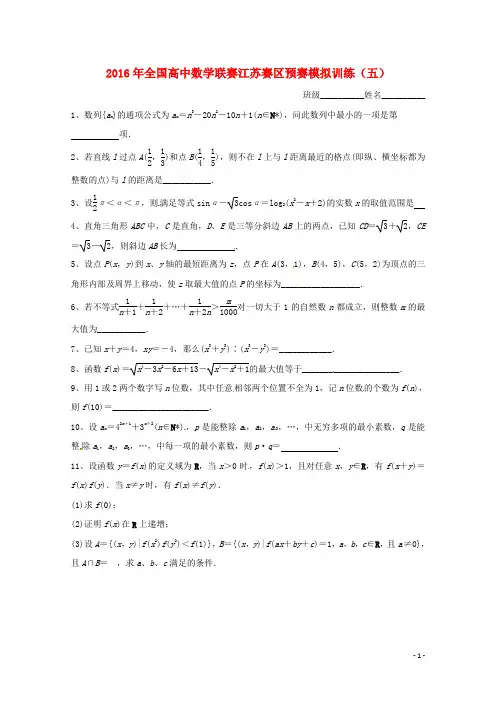 2016年全国高中数学联赛江苏赛区预赛模拟训练（五）
班级__________姓名__________
1、数列{aₙ}的通项公式为aₙ＝n³－20n²－10n＋1(n∈N*)，问此数列中最小的一项是第
___________项．
2、若直线l过点A(1/2，1/3)和点B(1/4，1/5)，则不在l上与l距离最近的格点(即纵、横坐标都为
整数的点)与l的距离是___________．
3、设1/2π＜α＜π，则满足等式sinα－√3cosα＝log₂(x²－x＋2)的实数x的取值范围是
4、直角三角形ABC中，C是直角，D、E是三等分斜边AB上的两点，已知CD＝√3＋√2，CE
＝√3－√2，则斜边AB长为____________．
5、设点P(x，y)到x、y轴的最短距离为z，点P在A(3，1)，B(4，5)，C(5，2)为顶点的三
角形内部及周界上移动，使z取最大值的点P的坐标为__________________．
6、若不等式1/(n＋1)＋1/(n＋2)＋…＋1/(n＋2n)＞m/1000对一切大于1的自然数n都立，则整数m的最
大值为___________．
7、已知x＋y＝4，xy＝－4，那么(x³＋y³)∶(x³－y³)＝____________．
9、用1或2两个数字写n位数，其中任意相邻两个位置不全为1，记n位数的个数为f(n)，
则f(10)＝______________________．
10、设aₙ＝4²ⁿ⁺¹＋3ⁿ⁺²(n∈N*)．，p是能整除a₁，a₂，a₃，…，中无穷多项的最小素数，q是能
整除a₁，a₂，a₃，…，中每一项的最小素数，则p·q＝____________．
11、设函数y＝f(x)的定义域为R，当x＞0时，f(x)＞1，且对任意x，y∈R，有f(x＋y)＝
f(x)f(y)．当x≠y时，有f(x)≠f(y)．
(1)求f(0)；
(2)证明f(x)在R上递增；
(3)设A＝{(x，y)|f(x²)f(y²)＜f(1)}，B＝{(x，y)|f(ax＋by＋c)＝1，a，b，c∈R，且a≠0}，
且A∩B＝ ，求a、b、c满足的条件．
- 1 -